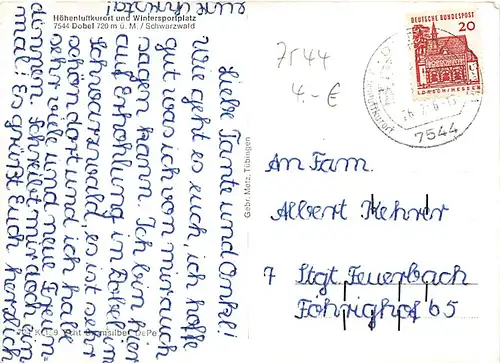 Höhenluftkurort und Wintersportplatz
7544 Dobel 720 m ü. M. / Schwarzwald
Liebe Tante und Onkel!
Wie geht es euch, ich hoffe
gut was ich von mir auch
sagen kann. Ich bin hier
auf Erhohlung in Dobel im
Schwarzwald, es ist sehr
schön dort und ich habe
sehr viele und neue Freun-
dinnen. Schreibt mir doch ein
mal! Es grüßt Euch herzlich
eure
Gebr. Metz, Tübingen
7544
4.-€
DEUTSCHE BUNDESPOST
20
LORSCH/HESSEN
7544
An Fam.
Albert Kehrer
7 Stgt. Feuerbach
Föhrichhof 65